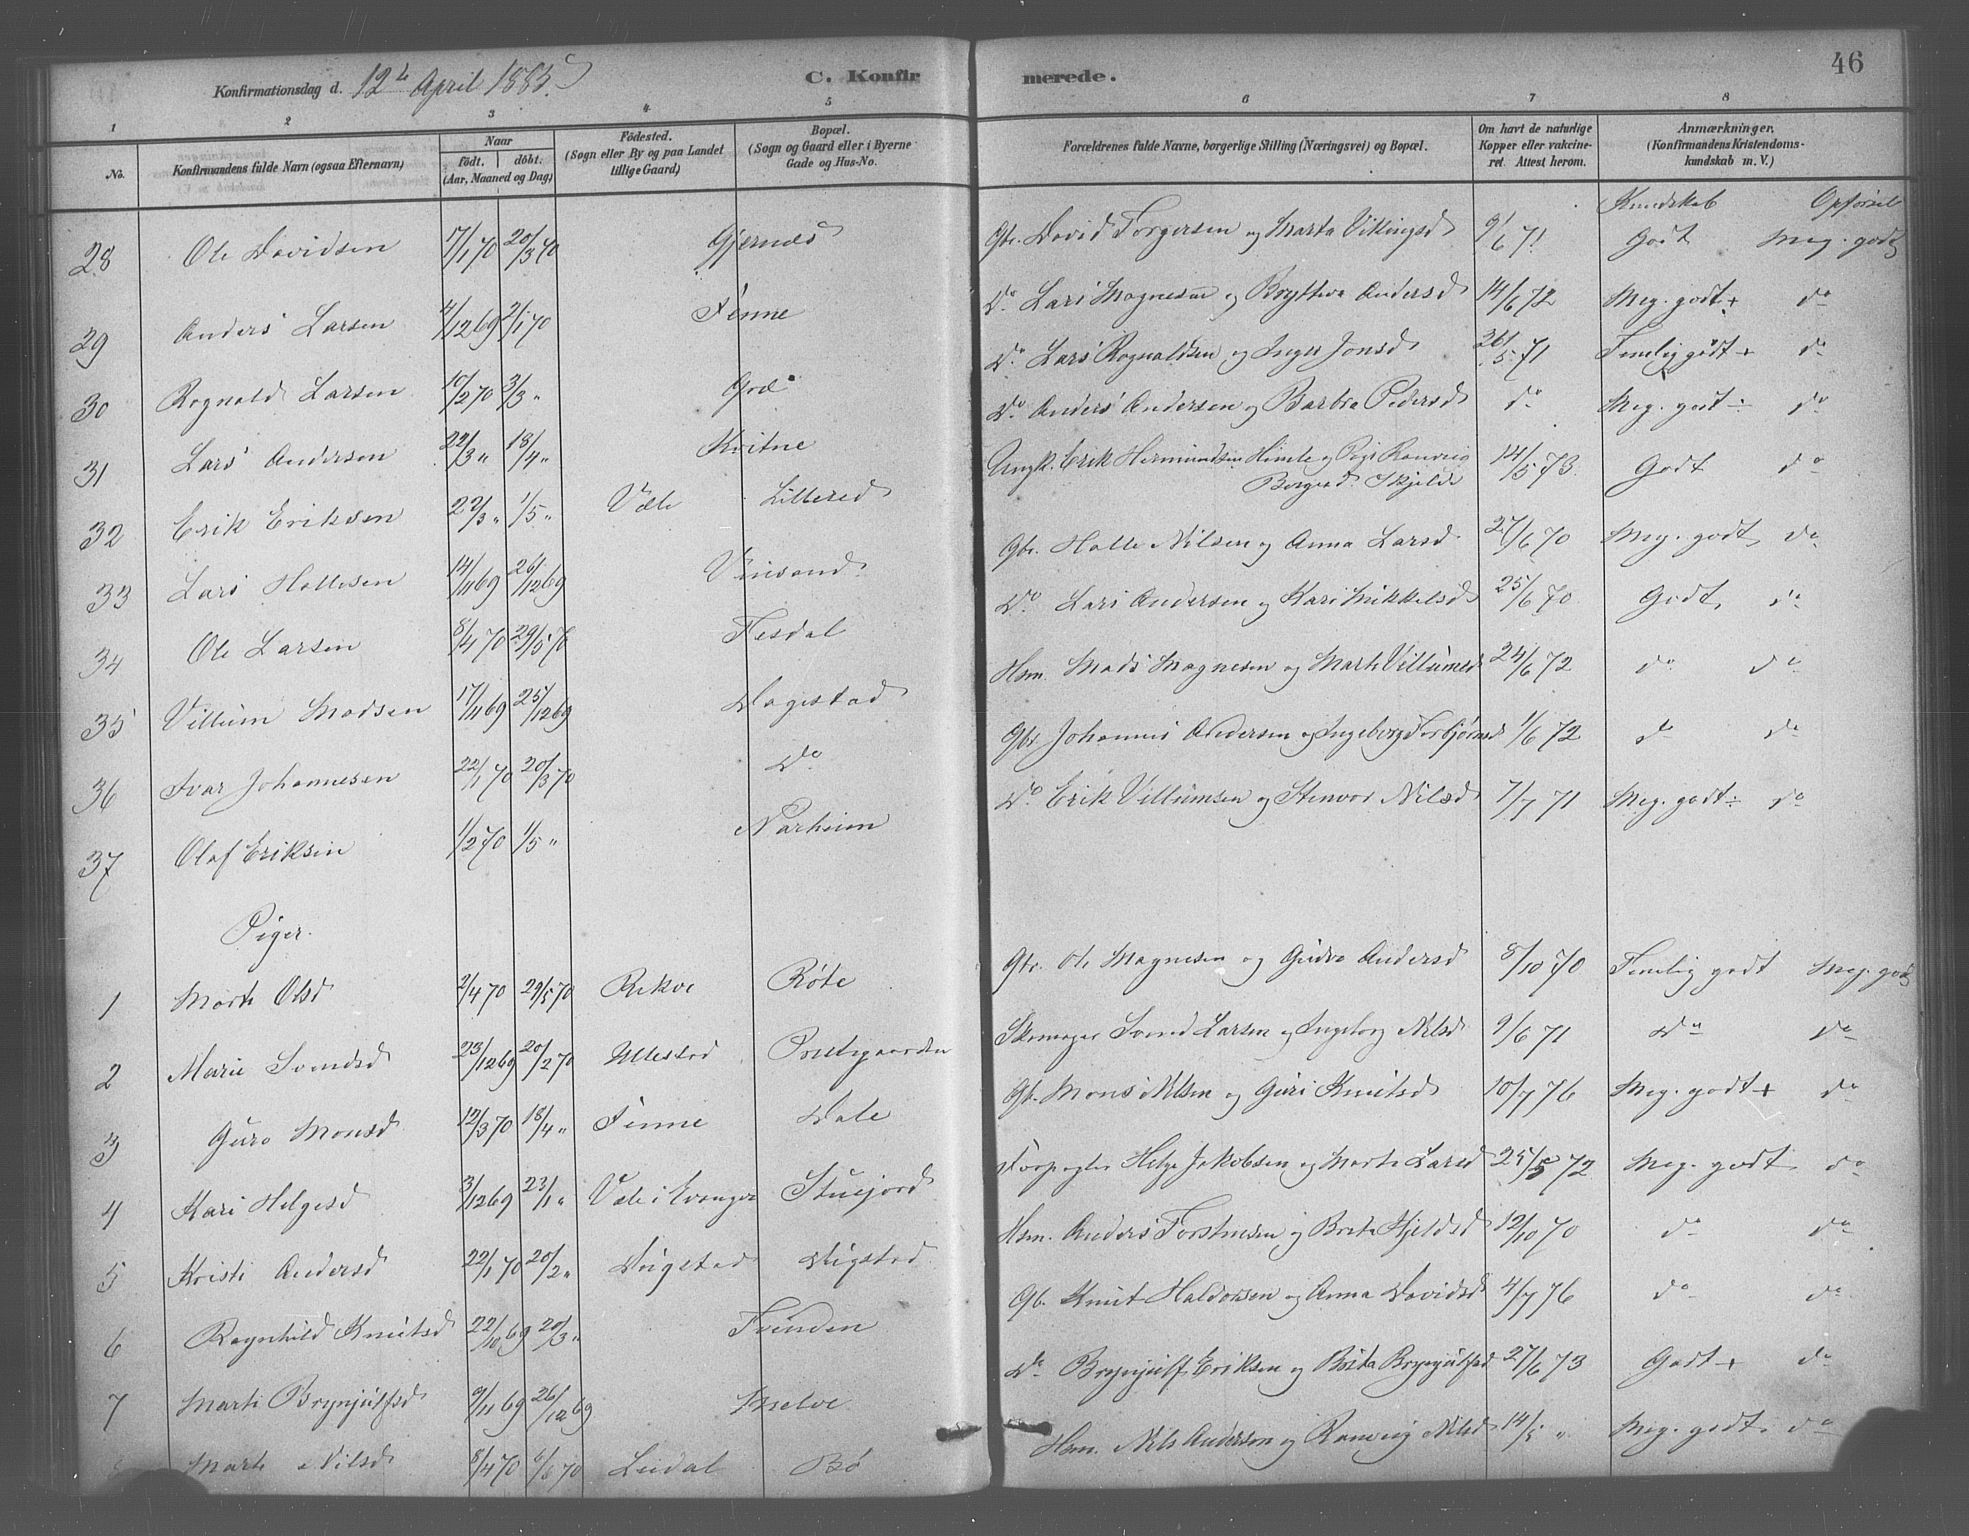 46
Konfirmationsdag d. 12te April 1885.
C. Konfirmerede.
1 2 3 4 5 6 7 8
No. Konfirmandens fulde Navn (ogsaa Efternavn) Naar født. døbt. (Aar, Maaned og Dag) Fødested. (Sogn eller By og paa Landet tillige Gaard) Bopæl. (Sogn og Gaard eller i Byerne Gade og Hus-No. Forældrenes fulde Navne, borgerlige Stilling (Næringsvei) og Bopæl. Om havt de naturlige Kopper eller vakcineret. Attest herom. Anmærkninger. (Konfirmandens Kristendomskundskab m. V.)
Kundskab Opførsel
28 Ole Davidsen 17/1 70 20/3 70 Gjernes Gbr. David Torgersen og Marta Vikingsd 9/6 71 Godt Meg. godt
29 Anders Larsen 4/12 69 2/1 70 Finne Do Lars Magnesen og Andersd 14/6 72 Meg. godt + do
30 Rognald Larsen 10/2 70 3/3 " Do Lars Rognaldsen og Inger Jonsd 26/5 71 Temlig godt + do
31 Lars Andersen 22/3 " 18/4 " Kvitne Do Anders Andersen og Barbra Pedersd do Meg. godt ÷ do
32 Erik Eriksen 22/3 " 1/5 " Væle Lillered Ungk. Erik Hermundsen Himle og Pige Ranveig Skjelde 14/5 73 Godt do
33 Lars Hallesen 14/11 69 26/12 69 Vinsand Gbr. Halle Nilsen og Anna Larsd 27/6 70 Meg. godt do
34 Ole Larsen 8/4 70 29/5 70 Tesdal Do Lars Andersen og Kari Mikkelsd 25/6 70 Godt do
35 Villum Madsen 17/11 69 25/12 69 Dagestad Hsm. Mads Magnesen og Marta Villumsd 24/6 72 do do
36 Ivar Johannesen 22/1 70 20/3 70 Do Gbr. Johannes Andersen og Ingeborg Torbjørnsd 1/6 72 do do
37 Olaf Eriksen 1/2 70 1/5 " Narheim Do Erik Villumsen og Steinvor Nilsd 7/7 71 Meg. godt ÷ do
Piger.
1 Marta Olsd 2/4 70 29/5 70 Rekve Røte Gbr. Ole Magnesen og Gudve Andersd 8/10 70 Temlig godt Meg. godt
2 Marie Svendsd 23/12 69 20/2 70 Ullestad Prestegaarden Skomager Svend Larsen og Ingeborg Nilsd 9/6 71 do do
3 Guro Monsd 12/3 70 18/4 " Finne Dale Gb. Mons Nilsen og Guri Knutsd 10/7 76 Meg. godt + do
4 Kari Helgesd 3/12 69 23/1 " Væle i Evanger Stuejord Forpagter Helge Jakobsen og Marta Larsd 25/5 72 Meg. godt do
5 Kristi Andersd 22/1 70 20/2 " Dugstad Dugstad Hsm. Anders Torstensen og Brita Kjeldsd 12/10 70 do do
6 Ragnhild Knutsd 22/10 69 20/3 " Tvinden Gb. Knut Haldorsen og Anna Davidsd 4/7 76 do do
7 Marta Brynjulfsd 9/11 69 26/12 69 Mæløe Do Brynjulf Eriksen og Brita Brynjulfsd 27/6 73 Godt + do
Marta Nilsd 8/4 70 6/6 70 Leidal Bø Hsm. Nils Andersen og Ranveig Nilsd 14/5 " Meg. godt do